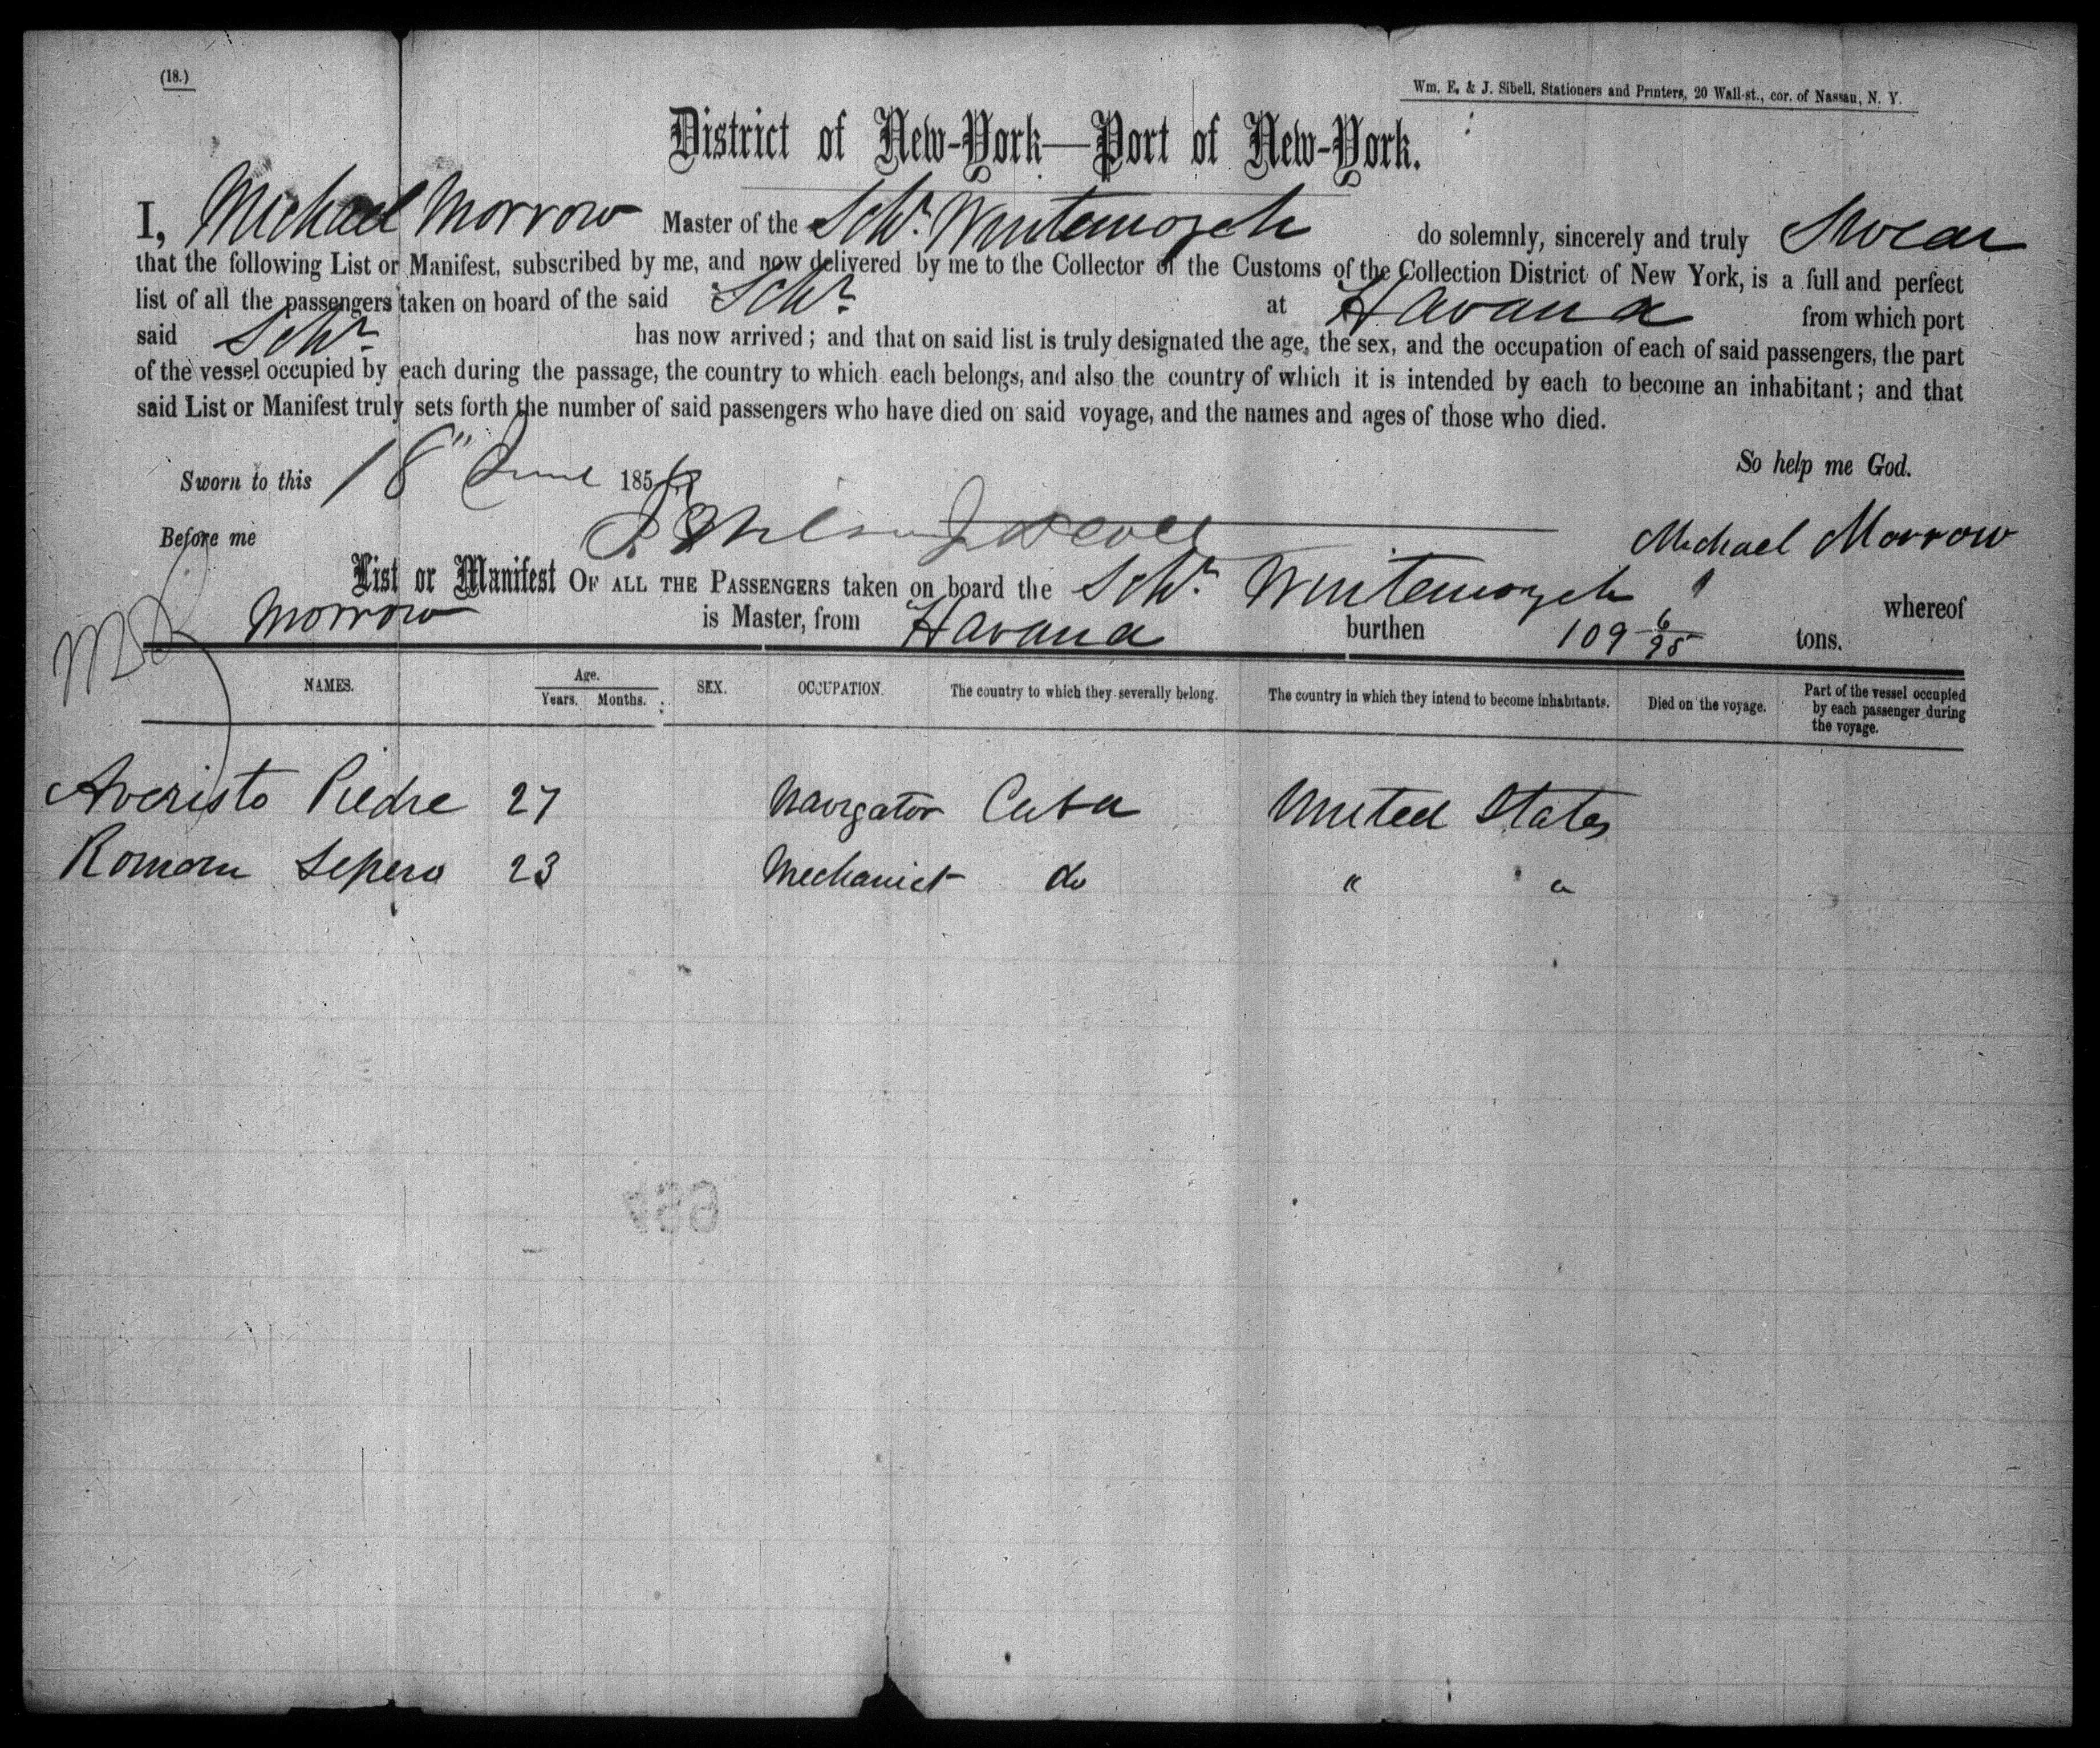 (18.)
Wm. E. & J. Sibell, Stationers and Printers, 20 Wall-st., cor. of Nassau, N. Y.
District of New-York—Port of New-York.
I, Michael Morrow Master of the Schr. do solemnly, sincerely and truly Swear
that the following List or Manifest, subscribed by me, and now delivered by me to the Collector of the Customs of the Collection District of New York, is a full and perfect
list of all the passengers taken on board of the said Schr. at Havana from which port
said Schr. has now arrived; and that on said list is truly designated the age, the sex, and the occupation of each of said passengers, the part
of the vessel occupied by each during the passage, the country to which each belongs, and also the country of which it is intended by each to become an inhabitant; and that
said List or Manifest truly sets forth the number of said passengers who have died on said voyage, and the names and ages of those who died.
So help me God.
Sworn to this 18" June 185
Before me
Michael Morrow
List or Manifest OF ALL THE PASSENGERS taken on board the Schr. whereof
Morrow is Master, from Havana burthen 109 6/95 tons.
NAMES. Age. Years. Months. SEX. OCCUPATION. The country to which they severally belong. The country in which they intend to become inhabitants. Died on the voyage. Part of the vessel occupied by each passenger during the voyage.
Averisto Piedre 27 Navigator Cuba United States
Romam Sepero 23 Mechanict do " "